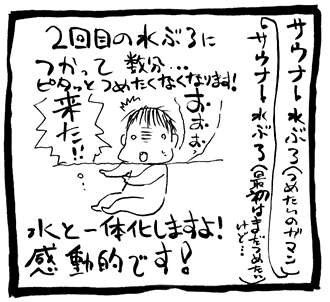 サウナ→水ぶろ(つめたいのガマン)
サウナ→水ぶろ(最初はまだつめたいけど…)
2回目の水ぶろに
つかって 数分…
ピタッとつめたくなくなります!
おぉぉぉ
来た!!
水と一体化しますよ!
感動的です!